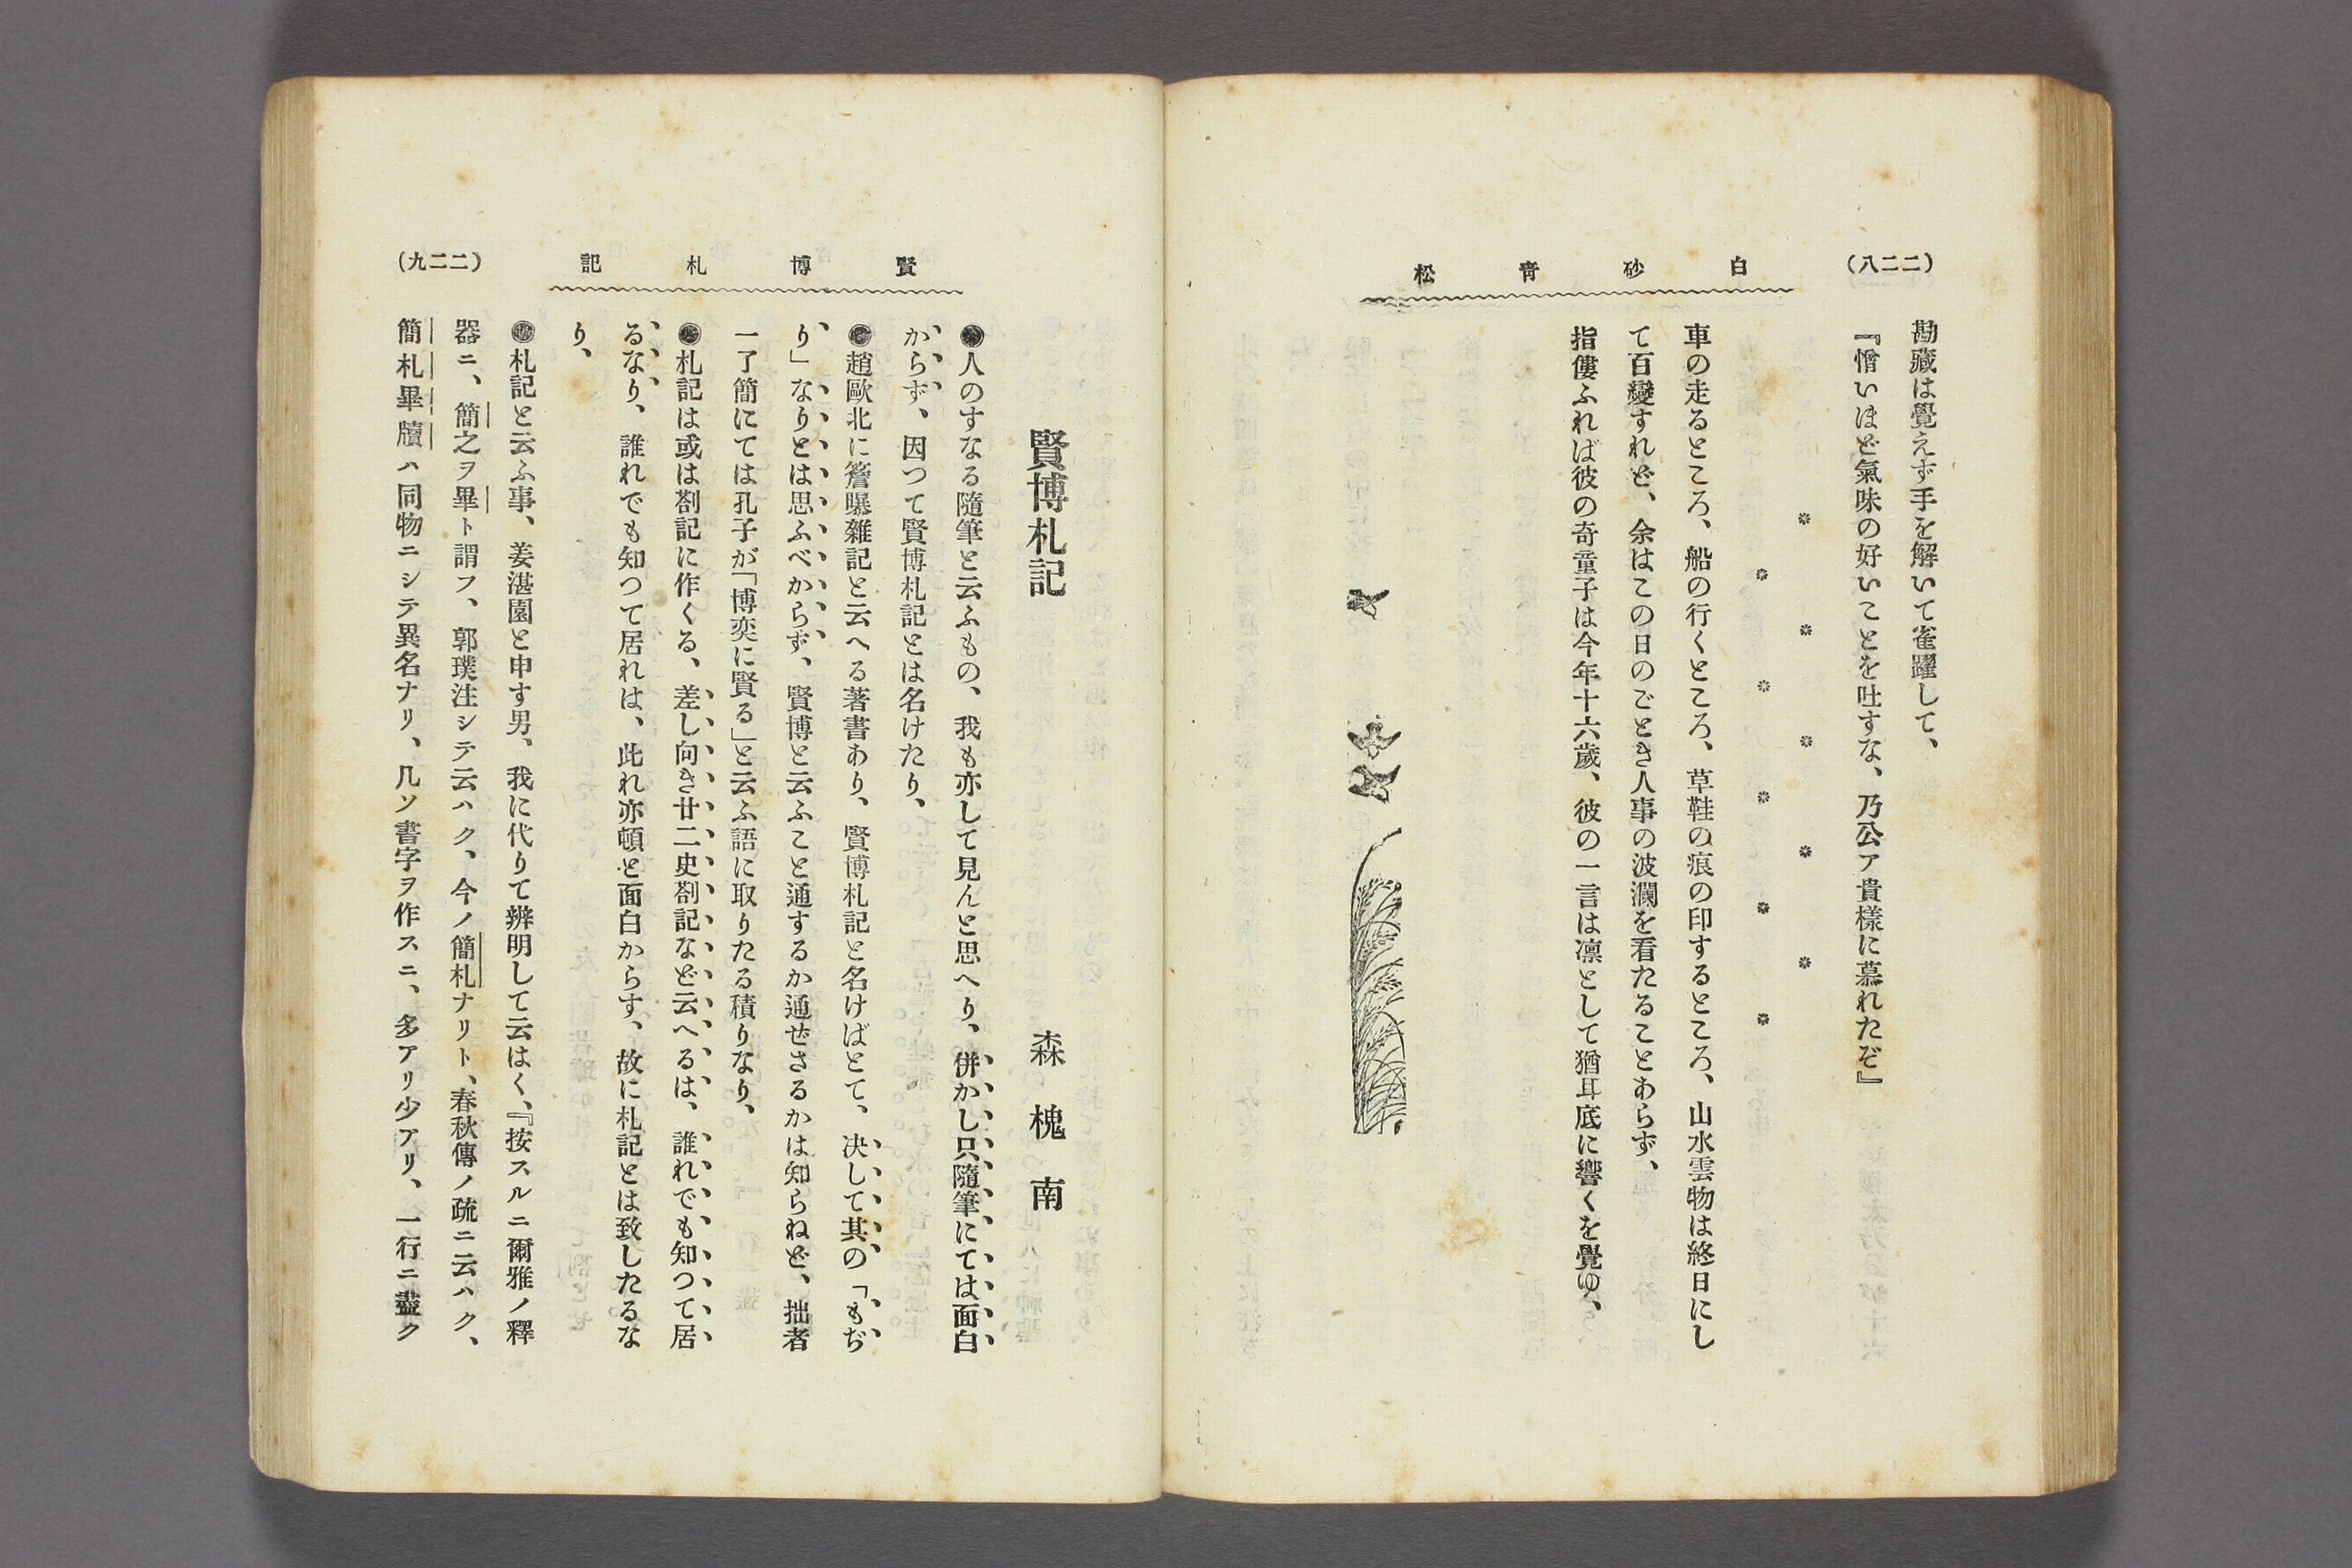 (二二八)
白砂青松
勘藏は覺えず手を解いて雀躍して、
『憎いほど氣味の好いことを吐すな、乃公ア貴樣に慕れたぞ』
車の走るところ、船の行くところ、草鞋の痕の印するところ、山水雲物は終日にし
て百變すれど、余はこの日のごとき人事の波瀾を看たることあらず、
指僂ふれば彼の奇童子は今年十六歲、彼の一言は凛として猶耳底に響くを覺ゆ、
賢博札記
(二二九)
賢博札記
森槐南
●人のすなる隨筆と云ふもの、我も亦して見んと思へり、併かし只隨筆にては面白
からず、因つて賢博札記とは名けたり、
●趙歐北に簷曝雜記と云へる著書あり、賢博札記と名けばとて、决して其の「もぢ
り」なりとは思ふべからず、賢博と云ふこと通するか通せさるかは知らねど、拙者
一了簡にては孔子が「博奕に賢る」と云ふ語に取りたる積りなり、
●札記は或は剳記に作くる、差し向き廿二史剳記など云へるは、誰れでも知つて居
るなり、誰れでも知つて居れは、此れ亦頓と面白からす、故に札記とは致したるな
り、
●札記と云ふ事、姜湛園と申す男、我に代りて辨明して云はく、『按スルニ爾雅ノ釋
器ニ、簡之ヲ畢ト謂フ、郭璞注シテ云ハク、今ノ簡札ナリト、春秋傳ノ疏ニ云ハク、
簡札畢牘ハ同物ニシテ異名ナリ、凡ソ書字ヲ作スニ、多アリ少アリ、一行ニ盡ク